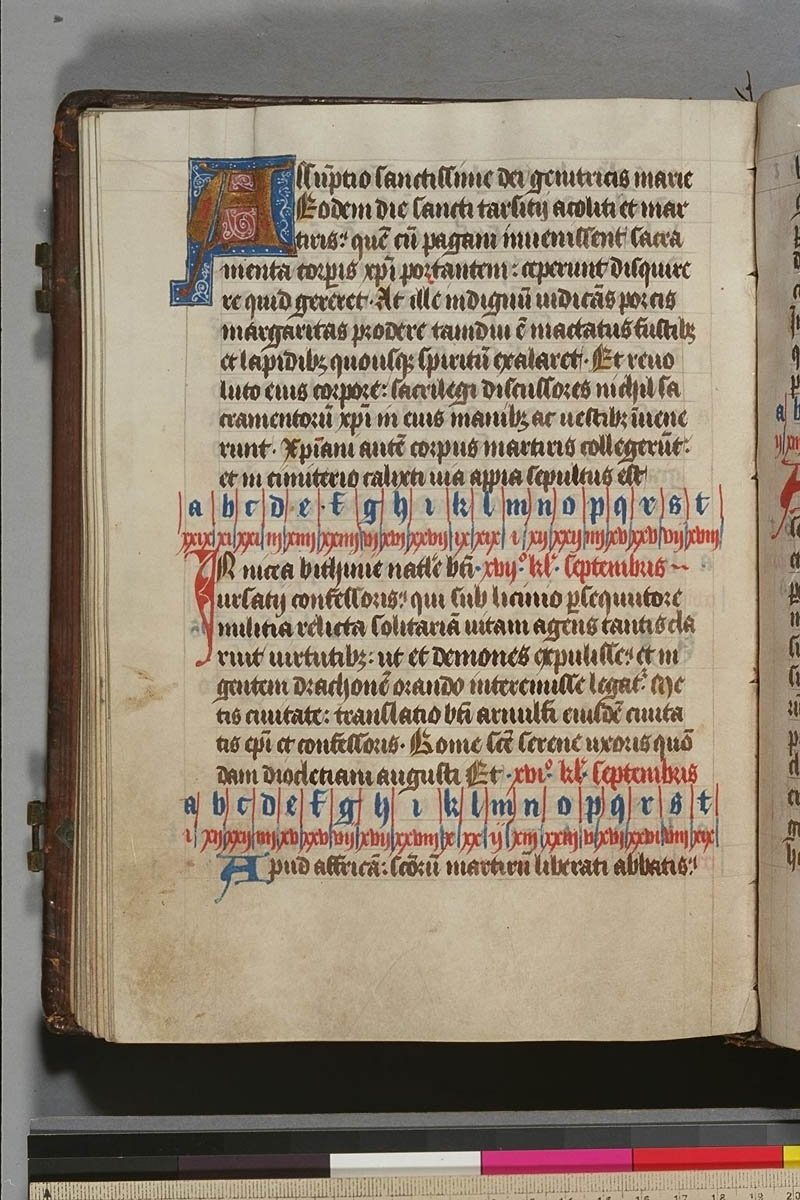 Assūptio sanctissime dei genitricis marie
Eodem die sancti tarsitij acoliti et mar
tiris: quē cū pagani inuenissent sacra
menta corpis xp̄i portantem: ceperunt disquire
re quid gereret. At ille indignū iudicās porcis
margaritas prodere tamdiu ē mactatus fustibꝫ
et lapidibꝫ quousqꝫ spiritū exalaret. Et reuo
luto eius corpore: sacrilegi discussores nichil sa
cramentorū xp̄i in eius manibꝫ ac uestibꝫ īuene
runt. Xp̄iani autē corpus martiris collegerūt:
et in cimiterio calixti uia appia sepultus est
a b c d e f g h i k l m n o p q r s t
xxix xi xxi iij xiiij xxiiij vj xvi xxvij ix xix i xij xxij iiij xv xxv vij xviij
IN nicea bithinie natł'e bt̄i xvij° kł' septembris
ursatij confessoris: qui sub licinio ꝑsequutore
militia relicta solitariā uitam agens tantis cla
ruit uirtutibꝫ: ut et demones expulisse: et in
gentem drachonē orando interemisse legat'. Me
tis ciuitate: translatio bt̄i arnulfi eiusdē ciuita
tis ep̄i et confessoris. Rome scē serene uxoris quō
dam diocletiani augusti Et xvi° kł' septembris
a b c d e f g h i k l m n o p q r s t
i xij xxij iiij xv xxv vij xvij xxviij x xx ij xiij xxiij v xvi xxvi viij xix
Apud affricā: scōrū martirū liberati abbatis: